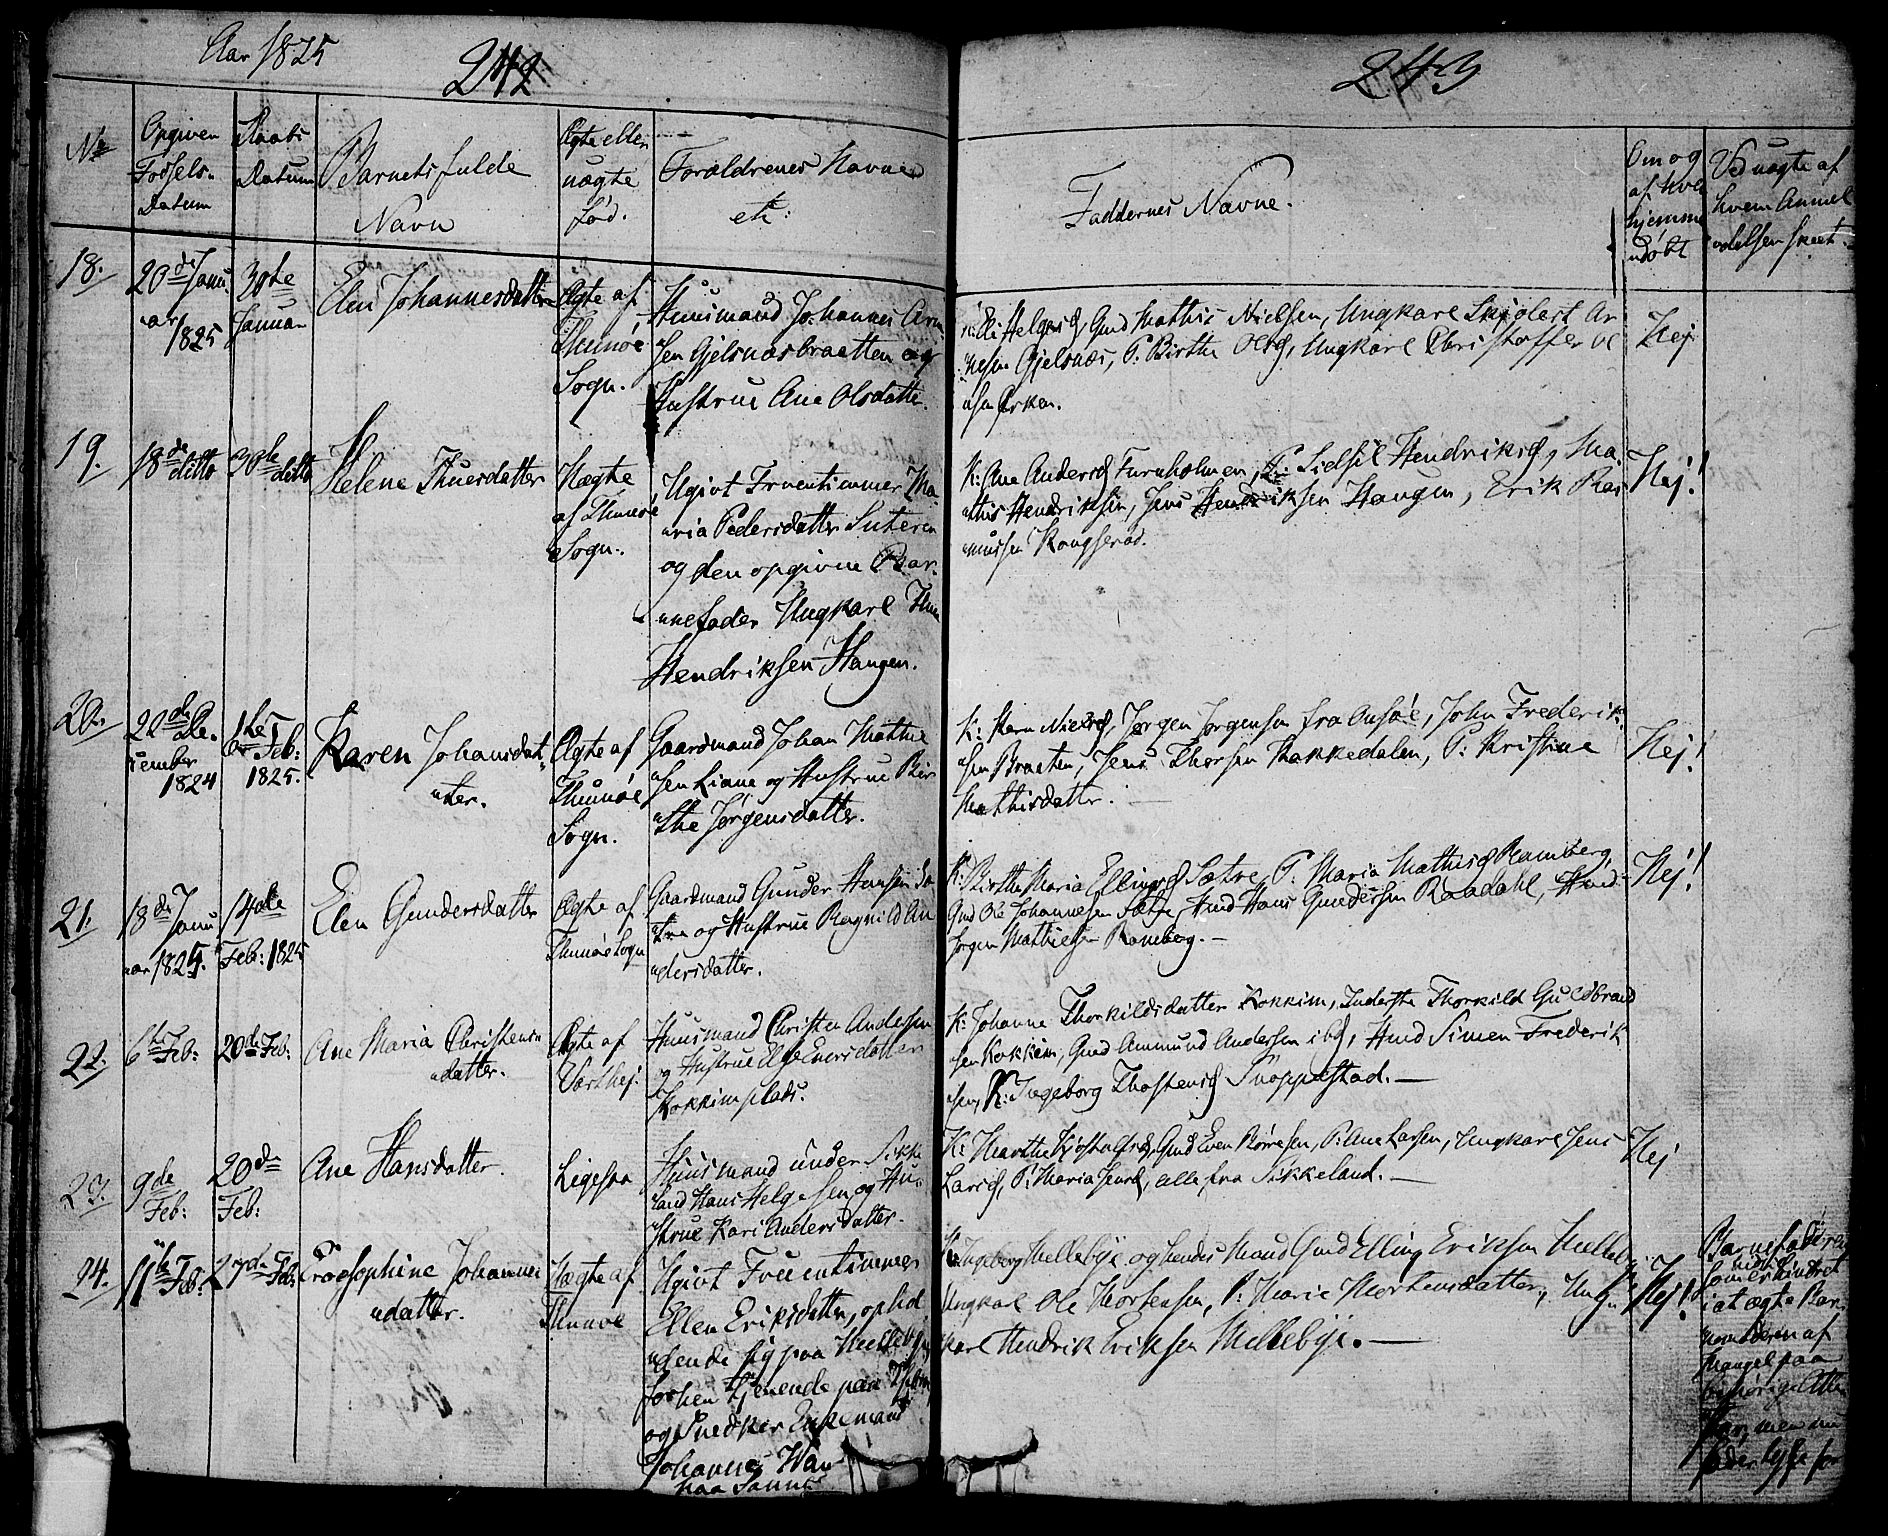 Aar 1825
242
243
No
Opgiven
Fødsels-
Datum
Daabs
Datum
Barnets fulde
Navn
Ægte eller
uægte
fød.
Forældrenes Navne
etc:
Faddernes Navne.
Om og
af hvem
hjemme
døbt
Ved uægte af
hvem Anmel
delsen skeet.
18.
20de Janu
ar
1825
30te
Januar
Elen Johannesdatter
Ægte af
Thunøe
Sogn.
Huusmand Johannes Arn
sen Gjelsnæsbraatten og
Hustrue Ane Olsdatter.
Helgesd, Gmd Mathis Nielsen, Ungkarl Skjølest Ar
nesen Gjelsnæs, P: Birthe Olsd, Ungkarl Christoffer Ol
sen Ørken.
Nej
19.
18de
ditto
30te
ditto
Helene Thuesdatter
Uægte
af Thunøe
Sogn.
Ugivt Fruentimmer Ma
ria Pedersdatter Suteren
og den opgivne Bar-
nefader Ungkarl Thue
Hendriksen Haugen.
K: Ane Andersd Furuholmen, P: Sidsil Hendriksd, Ma
this Hendriksen, Jens Hendriksen Haugen, Erik Ras
mussen Kongserød.
Nej!
20.
22de De-
cember
1824
1te
Feb:
1825.
Karen Johansdat
ter.
Ægte af
Thunøe
Sogn.
Gaardmand Johan Mathi
sen Liane og Hustrue Bir
the Jørgensdatter.
K: Karn Nielsd, Jørgen Jørgensen fra Onsøe, John Frederik
sen Braaten, Jens Thorsen Kakkedalen, P: Kristine
Mathisdatter.
Nej!
21.
18de Janu
ar 1825.
14de
Feb: 1825
Elen Gundersdatter
Ægte af
Thunøe Sogn
Gaardmand Gunder Hansen Sæ
tre og Hustrue Ragnild An
dersdatter.
K: Birthe Maria Ellingsd Sætre, P: Maria Mathisd Ramberg,
Gmd Ole Johannesen Sætre, Hmd Hans Gundersen Raadahl, Hmd
Jørgen Mathiesen Ramberg.
Nej!
22.
6te Feb:
20de Feb:
Ane Maria Christens
datter.
Ægte af
Varthej.
Huusmand Christen Andersen
og Hustrue Else Enersdatter
Kokkimplads.
K: Johanne Thorkildsdatter Kokkim, Inderste Thorkild Guldbrand
sen Kokkim, Gmd Ammund Andersen ibd, Hmd Simen Frederik
sen, K: Ingeborg Thostensd Snoppestad.
23.
9de
Feb:
20de
Feb:
Ane Hansdatter.
Ligesaa
Huusmand under Sikke
land Hans Helgesen og Hu
strue Kari Andersdatter.
K: Marthe Gmd Even Børresen, P: Ane Larsen, Ungkarl Jens
Larsd, P: Maria Jensd, alle fra Sikkeland.
Nej
24.
11te Feb:
27de Feb:
Josephine Johannes
datter.
Uægte af
Thunøe
Ugivt Fruentimmer
Ellen Eriksdatter, ophol
dende sig paa Mellebye
forhen tjenende paa
og Snedker Enkemand
Johannes
paa
K: Ingeborg Mellebye og hendes Mand Gmd Elling Eriksen Mellebye
Ungkarl Ole Mortensen, P: Marie Mortensdatter, Ung
karl Hendrik Eriksen Mellebye.
Nej!
Barnefaderen
som er hindret
i at ægte Bar
nemoderen af
Mangel paa
behørige Atte
ster, men nu